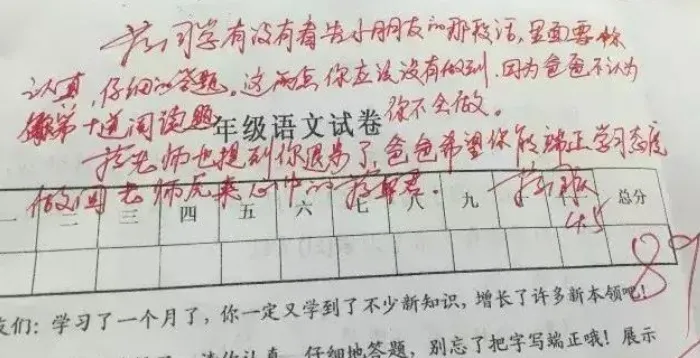 同学有没有看告小朋友的那段话，里面要你
认真、仔细的答题。这两点你应该没有做到，因为爸爸不认为
第十道阅读题 你不会做。
年级语文试卷
老师也提到你退步了，爸爸希望你能端正学习态度
做回老师 心中的
一 二 三 四 五 六 七 八 九 十 总分
4.5
89
友们：学习了一个月了，你一定又学到了不少新知识，增长了许多新本领吧！
请你认真、仔细地答题，别忘了把字写端正哦！展示